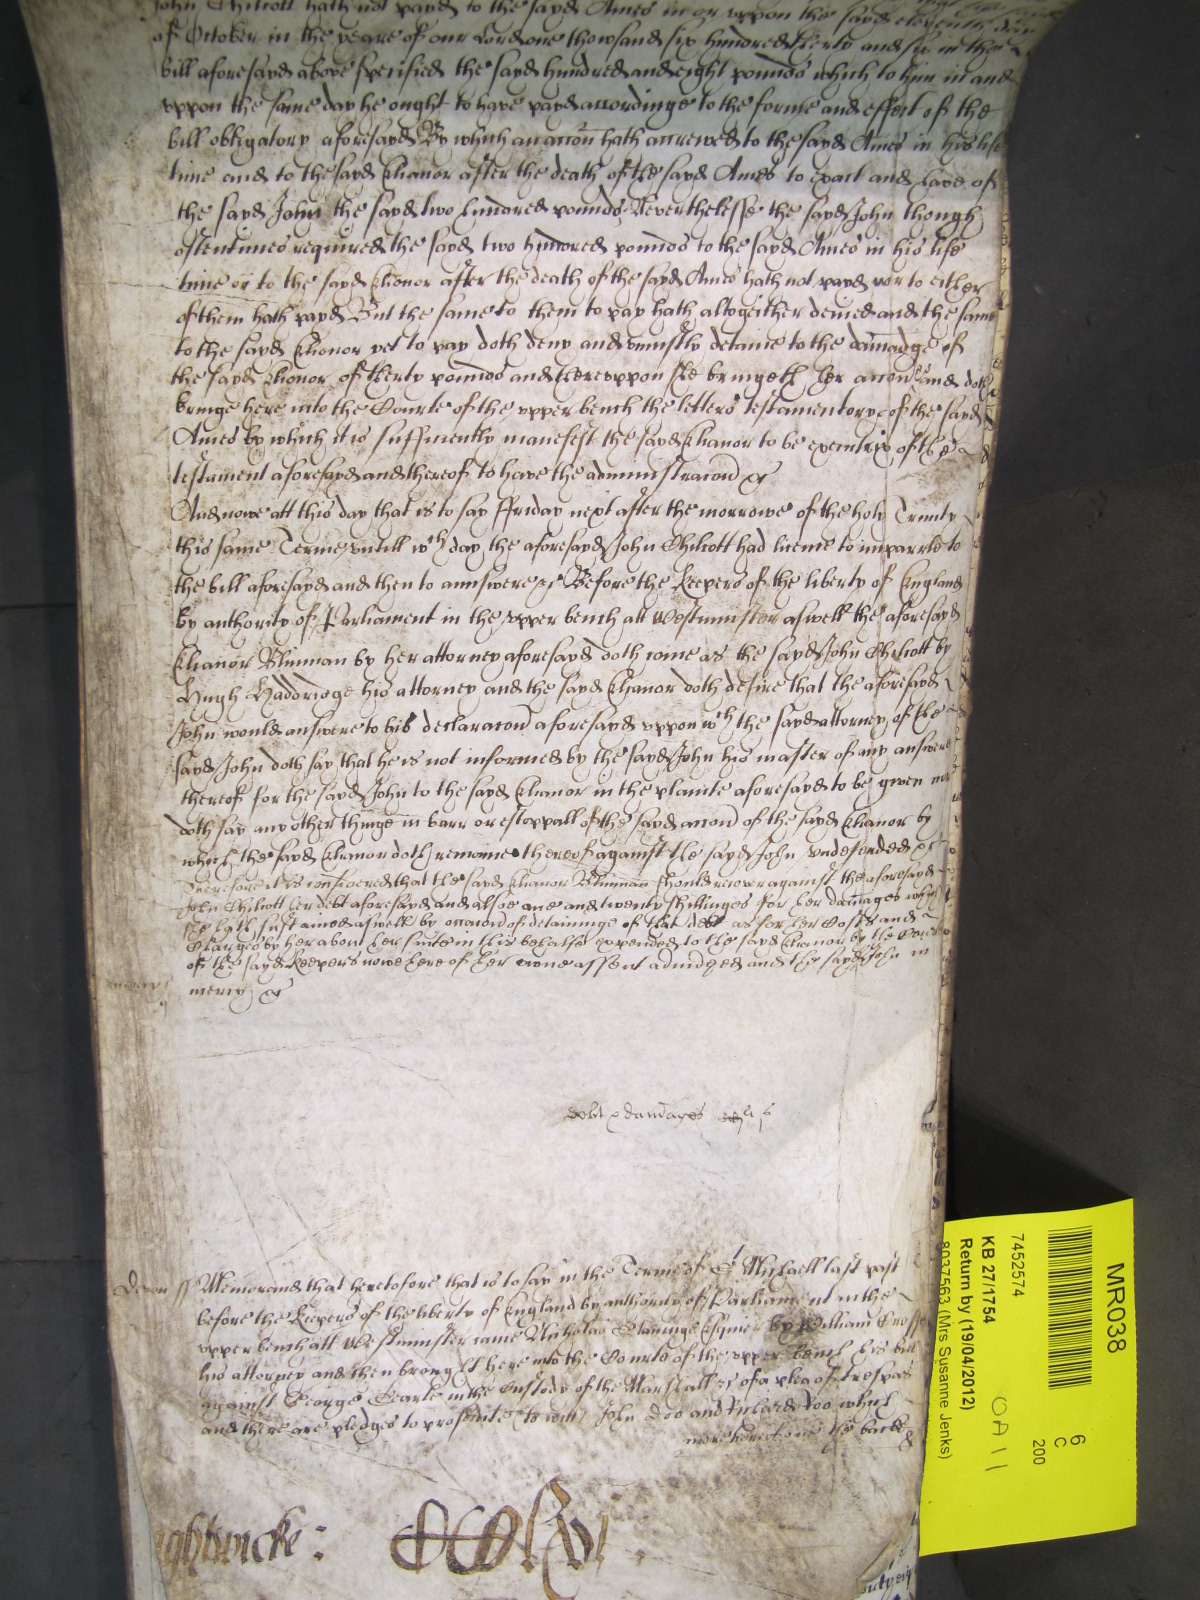 John Chilcott hath not payd to the sayd Ames in or uppon the sayd eleventh day
of October in the yeare of our Lord one thowsand six hundred thirty and six in the
bill aforesayd above specified the sayd hundred and eight pounds which to him in and
uppon the same day he ought to have payd accordinge to the forme and effect of the
bill obligatory aforesayd By which an accon hath accrewed to the sayd Ames in his life
time and to the sayd Elianor after the death of the sayd Ames to exact and have of
the sayd John the sayd two hundred pounds Neverthelesse the sayd John though
oftentimes required the sayd two hundred pounds to the sayd Ames in his life
time or to the sayd Elionor after the death of the sayd Ames hath not payd nor to either
of them hath payd But the same to them to pay hath altogeither denied and the same
to the sayd Elionor yet to pay doth deny and uniustly detaine to the damadge of
the sayd Elionor of thirty pounds and thereuppon she bringeth her accon and doth
bringe here into the Courte of the upper bench the letters testamentory of the sayd
Ames by which it is sufficiently manefest the sayd Elianor to be executrix of the
testament aforesayd and thereof to have the administracon &c
And nowe att this day that is to say ffriday next after the morrowe of the holy Trinity
this same Terme untill wch day the aforesayd John Chilcott had licence to imparle to
the bill aforesayd and then to answere &c Before the Keepers of the liberty of England
by authority of Parliament in the upper bench att Westminster aswell the aforesayd
Elianor Blinman by her attorney aforesayd doth come as the sayd John Chilcott by
Hugh Haddridge his attorney and the sayd Elianor doth desire that the aforesayd
John would answere to his declaracon aforesayd uppon wch the sayd attorney of the
sayd John doth say that he is not informed by the sayd John his master of any answere
thereof for the sayd John to the sayd Elianor in the plainte aforesayd to be given nor
doth say any other thinge in barr or estoppall of the sayd accon of the sayd Elianor by
which the sayd Elianor doth remaine thereof against the sayd John undefended &c
Therefore it is considered that the sayd Elianor Blinman should recover against the aforesayd
John Chilcott her debt aforesayd and alsoe one and twenty shillinges for her damages which
she hath sustained aswell by occacon of detaininge of that debt as for her Costs and
Charges by her about her suite in this behalfe expended to the sayd Elianor by the Court
of the sayd Keepers nowe here of her owne assent adiudged and the sayd John in
mercy &c
debt & damages
Devon ss Memorand that heretofore that is to say in the Terme of St Michaell last past
before the Keepers of the liberty of England by authority of Parliament in the
upper bench att Westminster came Nicholas Slaninge Esquier by William Crosse
his attorney and then brought here into the Courte of the upper bench his bill
against George Searle in the Custody of the Marshall &c of a plea of trespas
and there are pledges to prosecute to witt John Doo and Richard Roo which
the backe
ightwicke :
MR038
7452574
KB 27/1754
Return by (19/04/2012)
8037563 (Mrs Susanne Jenks)
6
C
200
OA 11